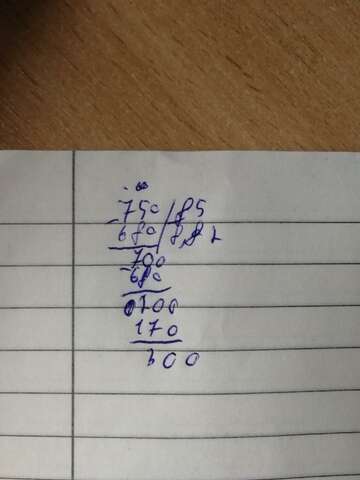 -750/85
680/8,82
700
-680
0200
170
300